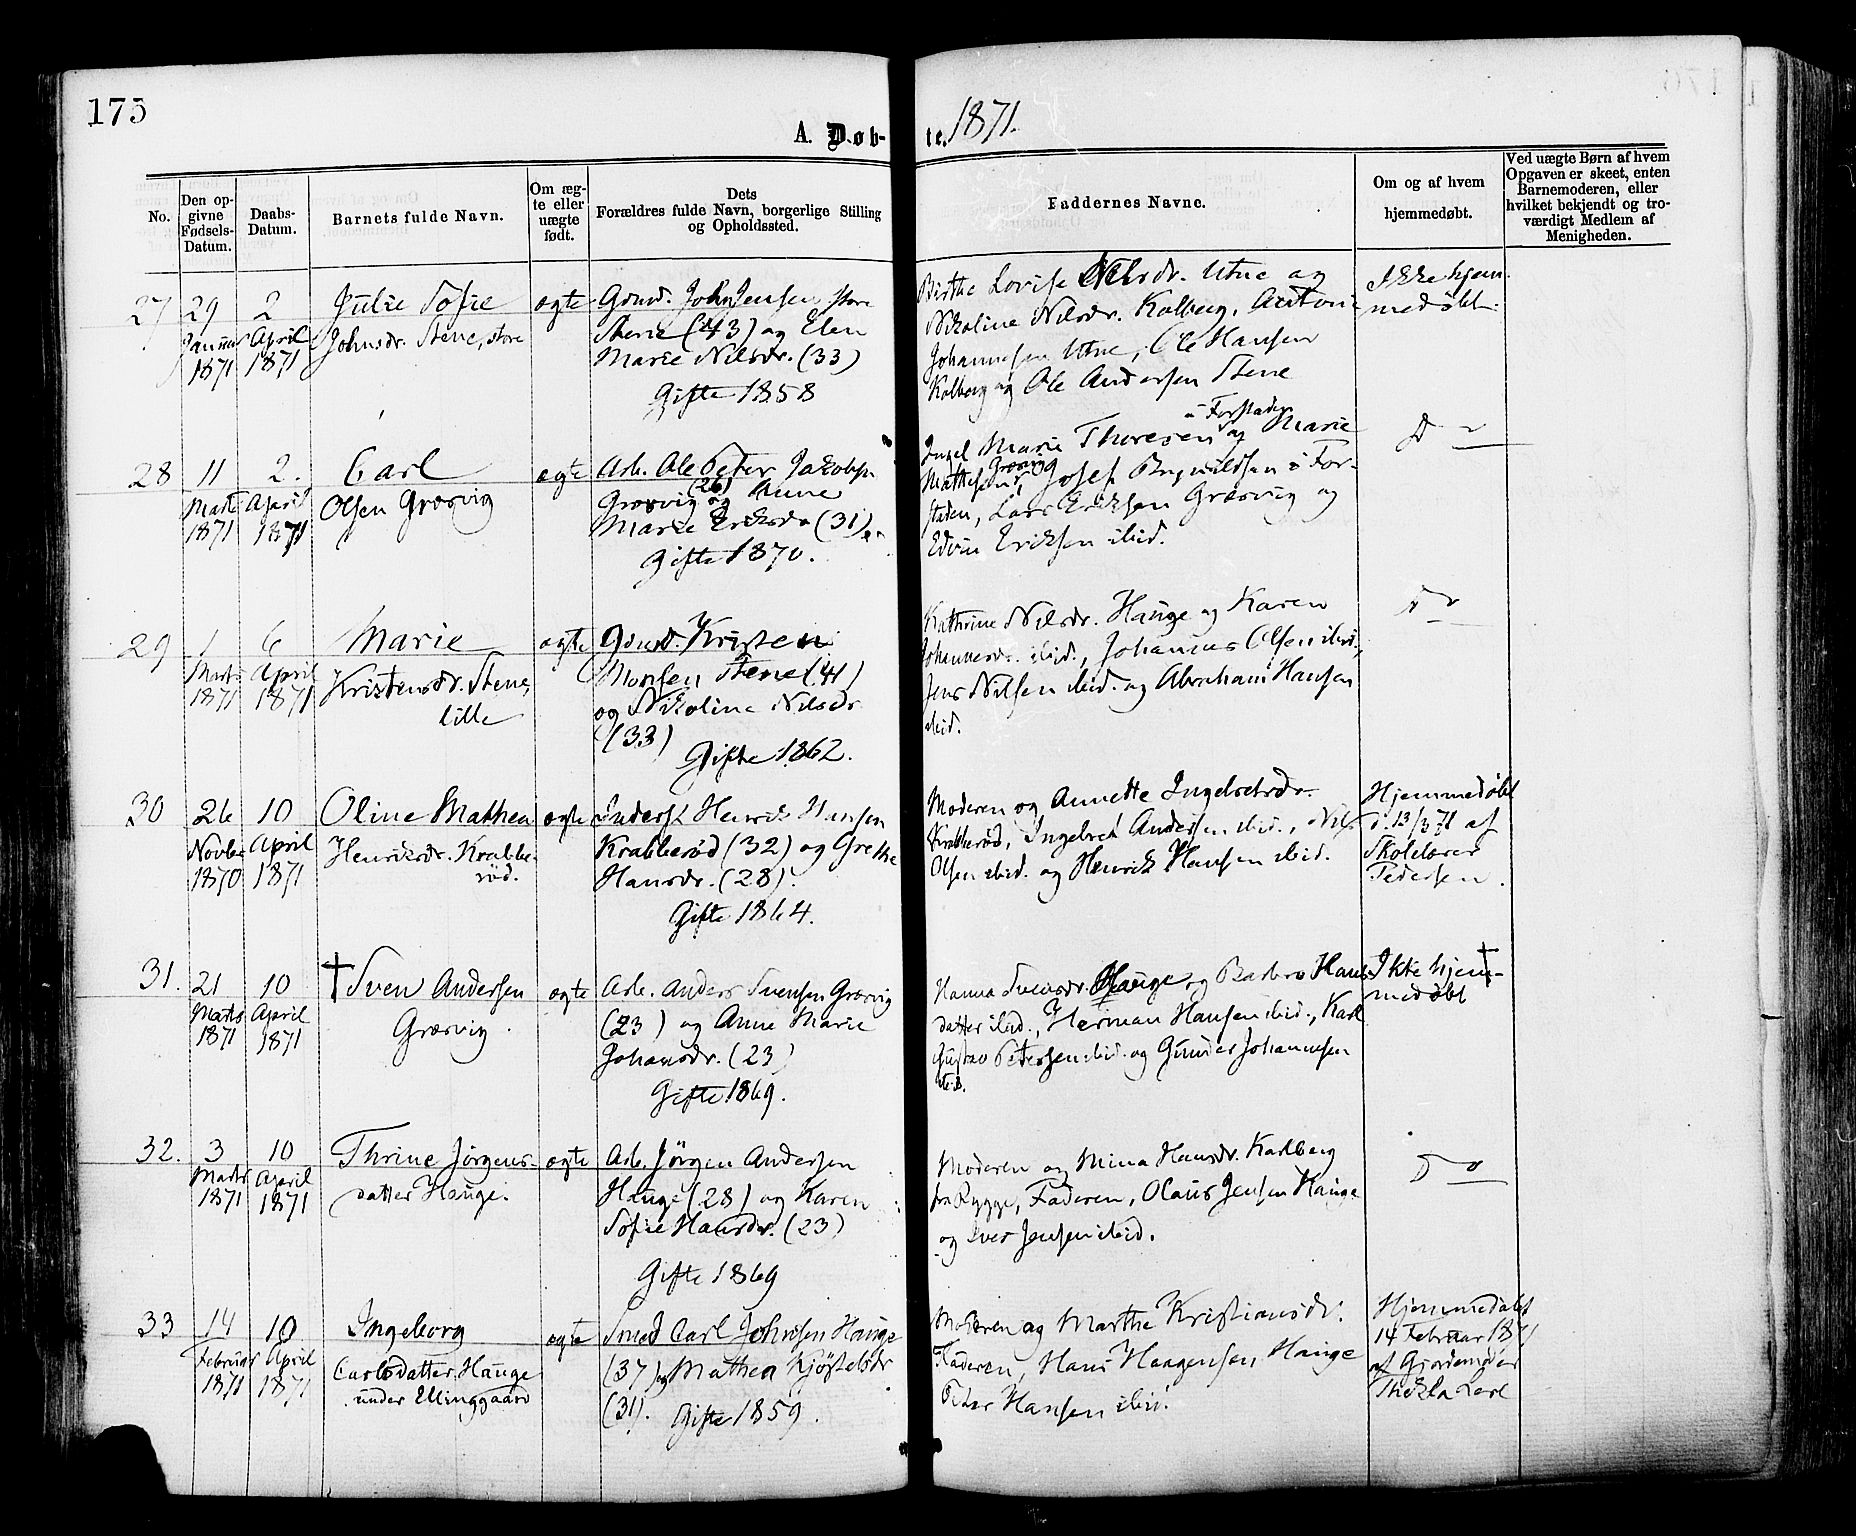 175
A. Døb-
te. 1871.
No.
Den op-
givne
Fødsels-
Datum.
Daabs-
Datum.
Barnets fulde Navn.
Om æg-
te eller
uægte
født.
Dets
Forældres fulde Navn, borgerlige Stilling
og Opholdssted.
Faddernes Navne.
Om og af hvem
hjemmedøbt.
Ved uægte Børn af hvem
Opgaven er skeet, enten
Barnemoderen, eller
hvilket bekjendt og tro-
værdigt Medlem af
Menigheden.
27
29
Januar
1871
2
April
1871
Julie Sofie
Johnsdr. Stene, store
ægte
Gmd. John Jensen, store
Stene (43) og Elen
Marie Nilsdr. (33)
Gifte 1858
Birthe Lovise Nilsdr. Utne og
Nikoline Nilsdr. Kalberg, Anton
Johannesen Utne, Ole Hansen
Kalberg og Ole Andersen Stene
Ikke hjem-
medøbt.
28
11
Marts
1871
2.
April
1871
Carl
Olsen Græsvig
ægte
Arb. Ole Peter Jakobsen
Græsvig (26) og Anne
Marie Eriksdr (31)
Gifte 1870.
Ingel Marie Thoresen i Forstaden og Marie
Mathesen Græsvig, Josef Bryniildsen i For-
staden, Lars Eriksen Græsvig og
Edvin Eriksen ibid.
D o
29
1
Marts
1871
6
April
1871
Marie
Kristensdr. Stene,
lille
ægte
Gmd. Kristen
Monsen Stene (41)
og Nikoline Nilsdr.
(33)
Gifte 1862.
Kathrine Nilsdr. Hauge og Karen
Johannesdr. ibid., Johannes Olsen ibid.,
Jens Nilsen ibid. og Abraham Hansen
ibid.
D o
30
26
Novbr
1870
10
April
1871
Oline Mathea
Henriksdr. Krabbe-
rød.
ægte
Inderst Henrik Hansen
Krabberød (32) og Grethe
Hansdr. (28).
Gifte 1864.
Moderen og Annette Ingebretsdr.
Krabberød, Ingebret Andersen ibid., Nils
Olsen ibid. og Henrik Hansen ibid.
Hjemmedøbt
d. 13/3 71 af
Skolelærer
Pedersen.
31.
21
Marts
1871
10
April
1871
† Sven Andersen
Græsvig.
ægte
Arb. Anders Svensen Græsvig
(23) og Anne Marie
Johansdr. (23)
Gifte 1869.
Hanna Svensdr. Hauge og Barbro Hans-
datter ibid., Herman Hansen ibid., Karl
Gustav Petersen ibid. og Gunder Johannesen
ibid.
Ikke hjem- †
medøbt
32.
3
Marts
1871
10
April
1871
Thrine Jørgens-
datter Hauge.
ægte
Arb. Jørgen Andersen
Hauge (28) og Karen
Sofie Hansdr. (23)
Gifte 1869
Moderen og Mina Hansdr. Karlberg
fra Rygge, Faderen, Olaus Jensen Hauge
og Iver Jensen ibid.
D o
33
14
Februar
1871
10
April
1871
Ingeborg
Carlsdatter Hauge
under Elinggaard
ægte
Smed Carl Johnsen Hauge
(37) og Mathea Kjøstelsdr
(31). Gifte 1859.
Moderen og Marthe Kristiansdr.
Faderen, Hans Haagensen Hauge
Peter Hansen ibid.
Hjemmedøbt
14 Februar 1871
af Gjordemoder
Thekla